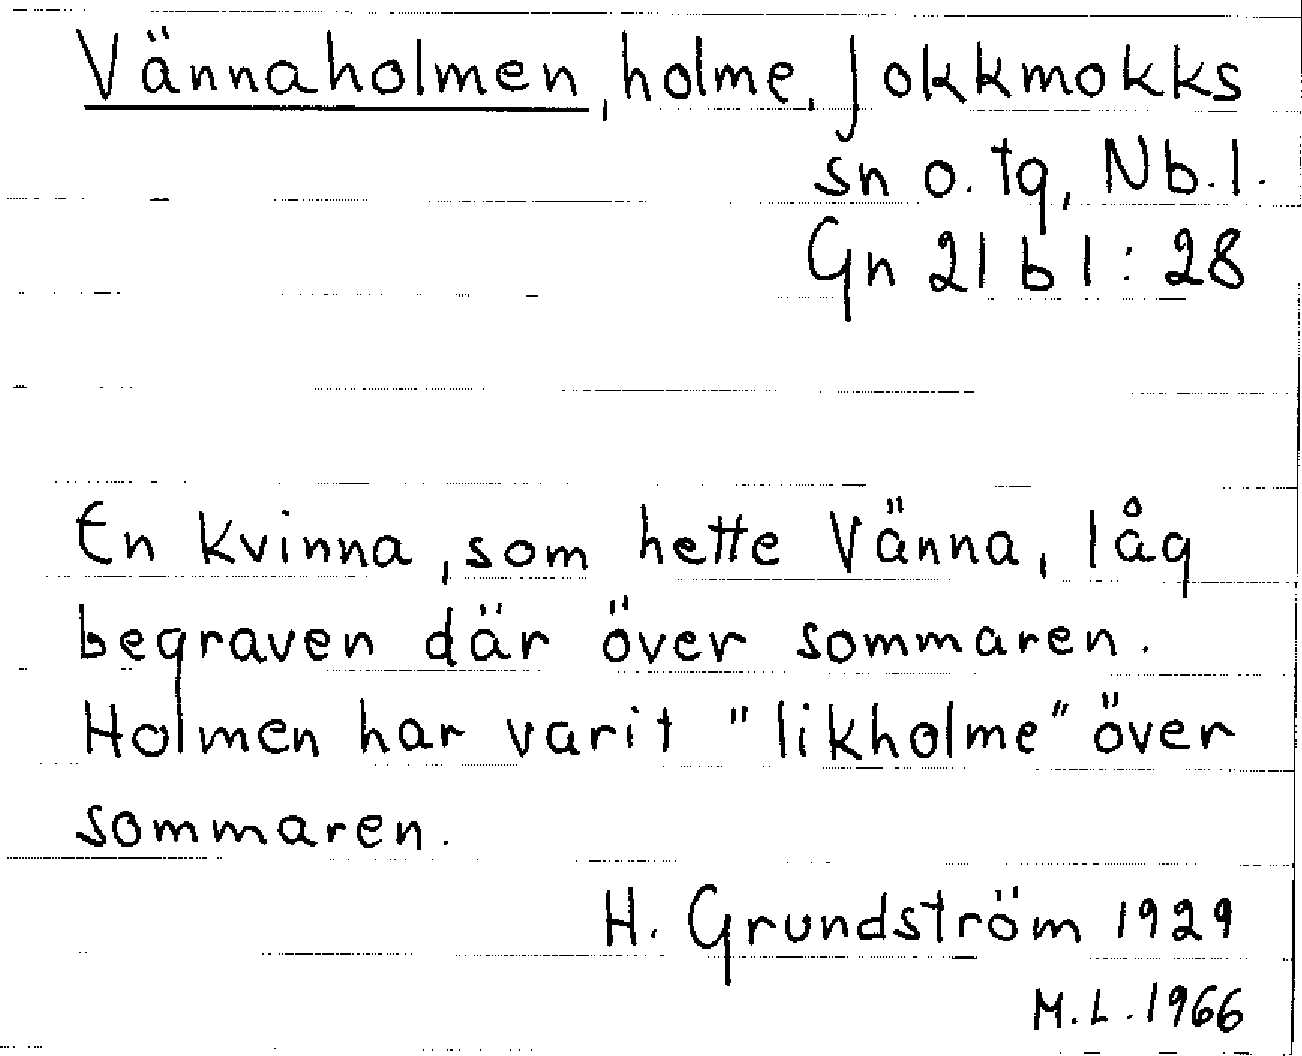 Vännaholmen, holme, Jokkmokks
sn o. tg, Nb.l.
Gn 21 b 1 : 28
En kvinna, som hette Vänna, låg
begraven där över sommaren.
Holmen har varit "likholme" över
sommaren.
H. Grundström 1929
M.L. 1966